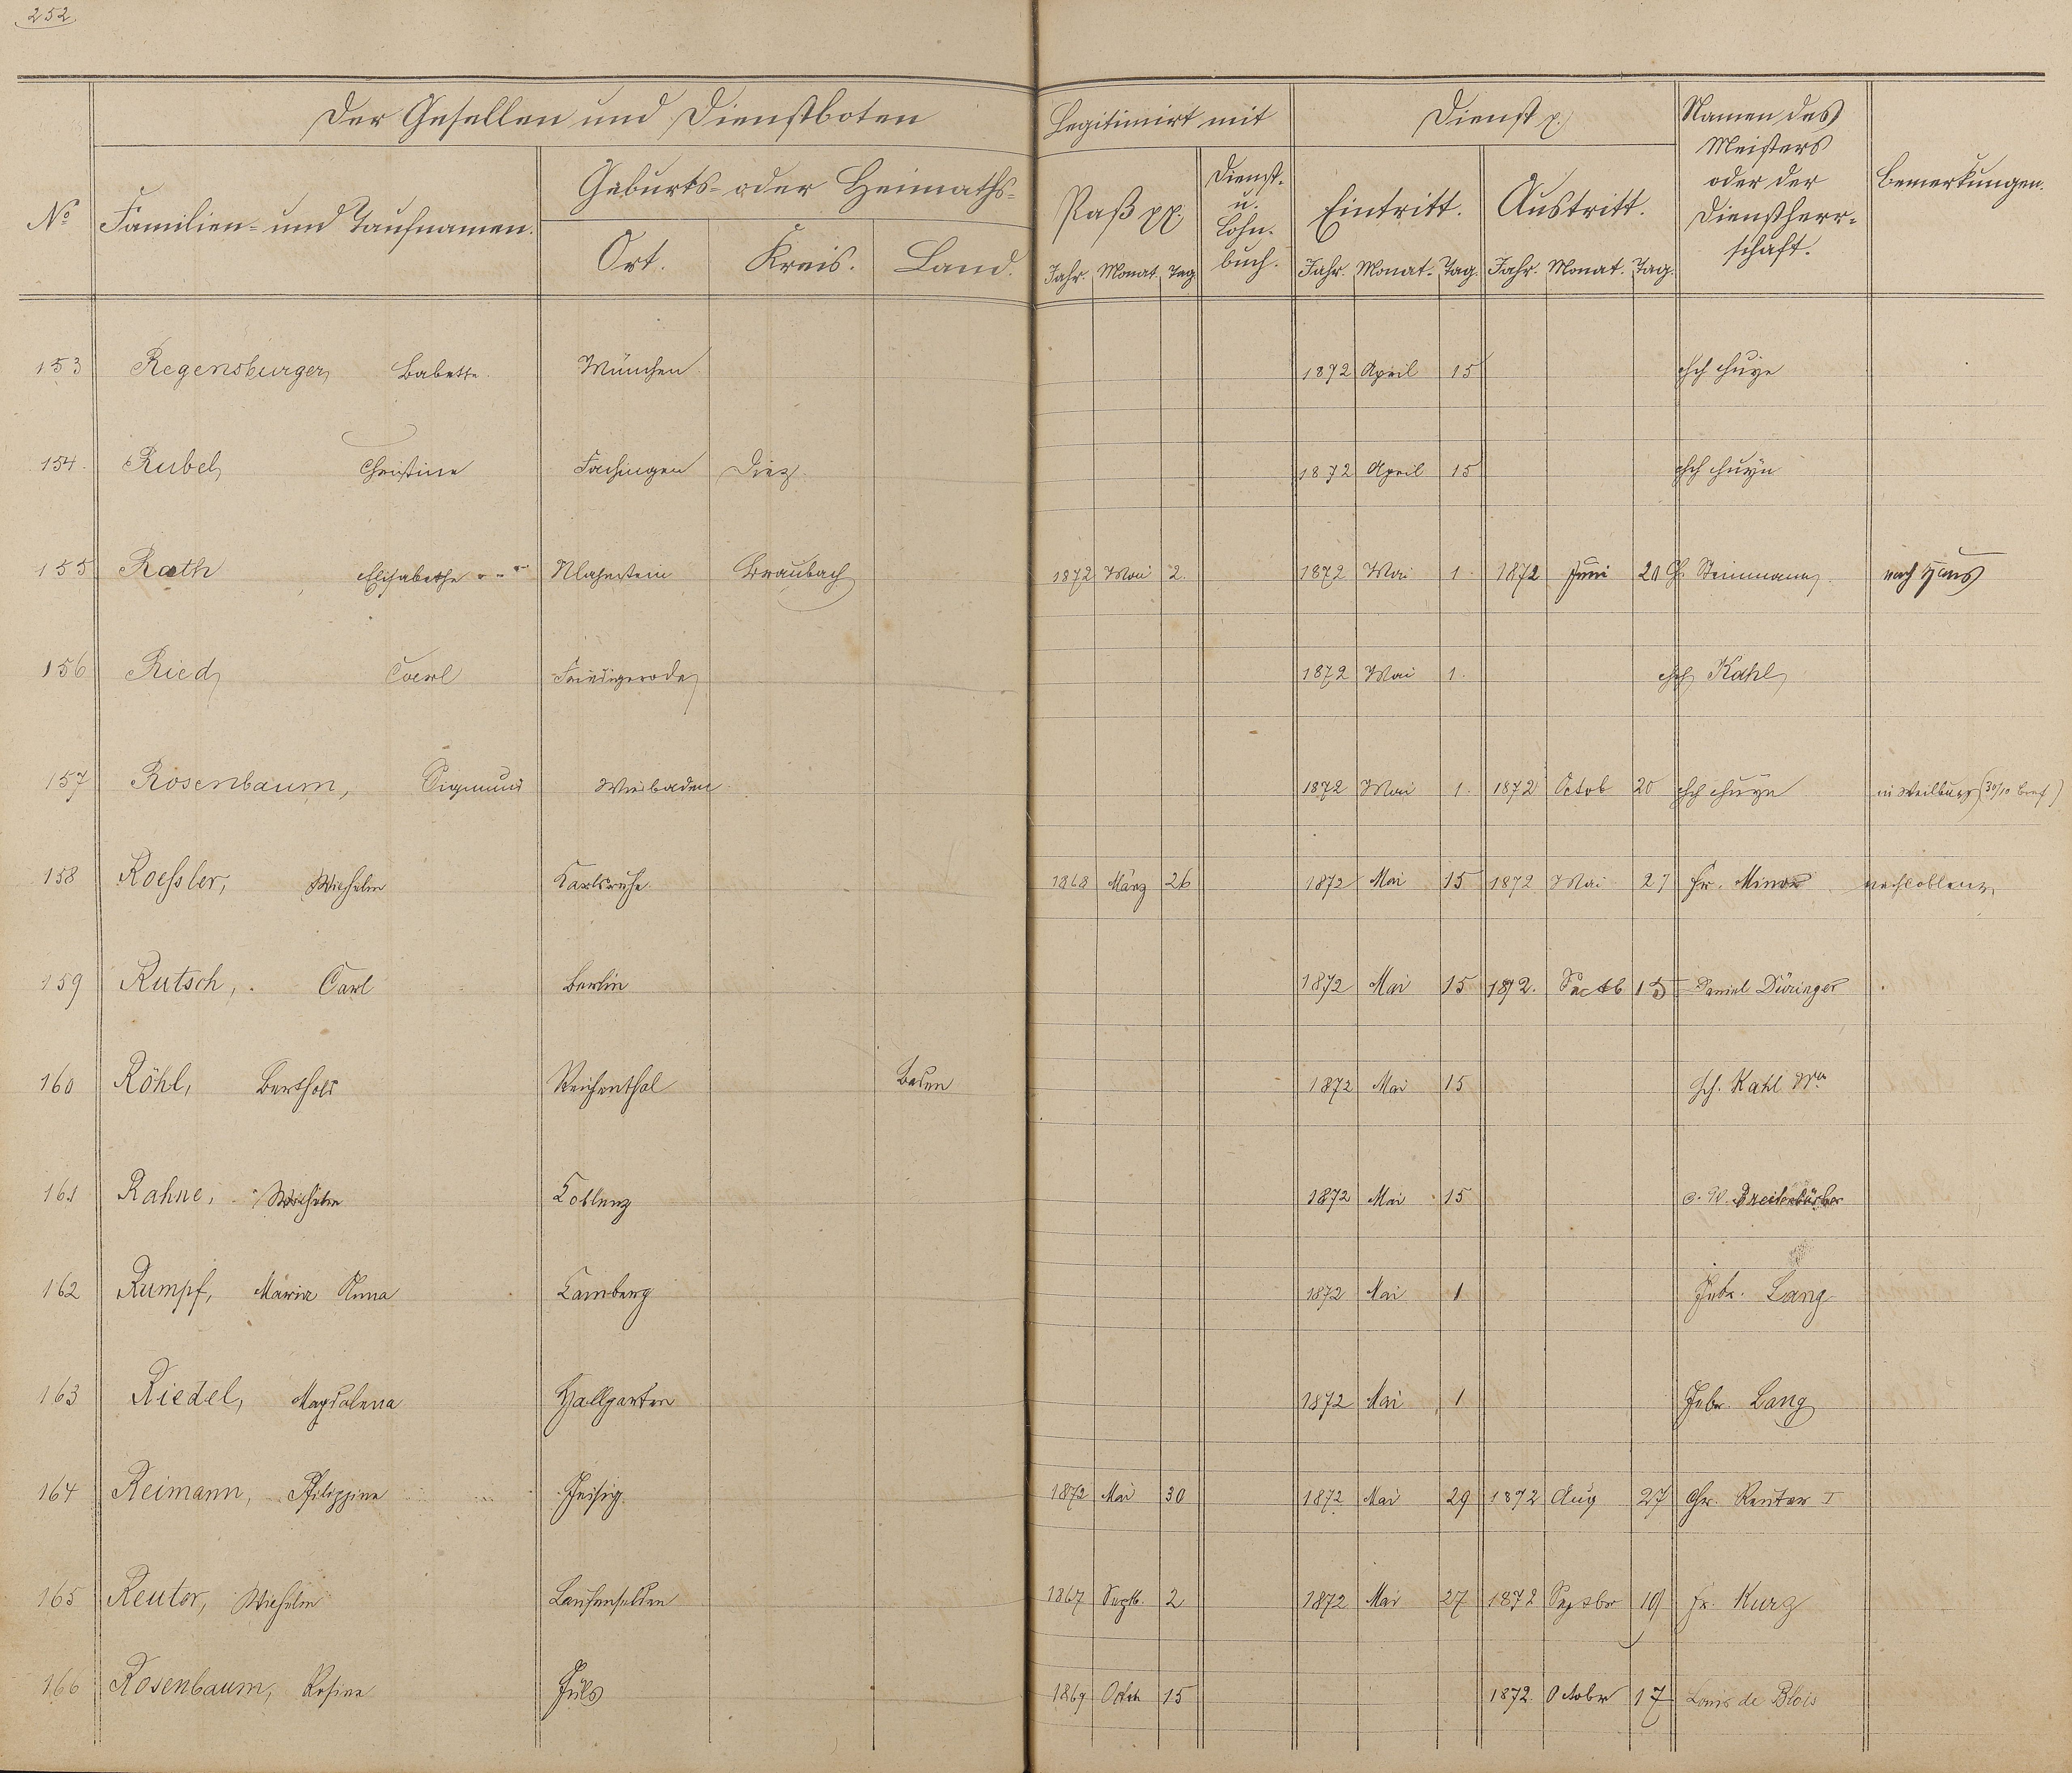 252
Der Gesellen und Dienstboten
Legitimirt mit
Dienst p.
Namen des Meisters oder der Dienstherr-schaft.
Bemerkungen.
No
Familien- und Taufnamen.
Geburts- oder Heimaths-
Ort. Kreis. Land.
Paß pp.
Dienst- u. Lohn-buch.
Eintritt. Austritt.
Jahr. Monat. Tag
Jahr. Monat. Tag. Jahr. Monat. Tag.
153 Regensburger, Babette München 1872 April 15
154. Rubel, Christine Fachingen Diez. 1872 April 15
155 Rath Elisabethe Nlahnstein Braubach 1872 Mai 2. 1872 Mai 1. 1872 Juni 20 Steinmann nach Haus
156 Ried, Carl 1872 Mai 1. Kahl
157 Rosenbaum, Sigmund Wiesbaden 1872 Mai 1. 1872 Octob 20 in Weilburg
158 Roessler, Wilhelm Karlsruhe 1868 März 26 1872 Mai 15 1872 Mai 27 Fr. Minor nach Coblenz
159 Rutsch, Carl Berlin 1872 Mai 15 1872. 15 Daniel Düringer
160 Röhl, Berthold Reichenthal Baden 1872 Mai 15 Hch. Kahl Wu
161 Rahne, Wilhelm Coblenz 1872 Mai 15
162 Rumpf, Maria Anna Camberg 1872 Mai 1 Gebr. Lang
163 Riedel, Magdalena Hallgarten 1872 Mai 1 Gebr. Lang
164 Reimann, Philippine 1872 Mai 30 1872 Mai 29 1872 Aug 27 Chr. Reuter I
165 Reuter, Wilhelm Laufenselden 1867 Septb. 2 1872 Mai 27 1872 Septbr 19 Fr. Kurz
166 Rosenbaum, Rosina 1869 Octob 15 1872. October 17 Louis de Blois